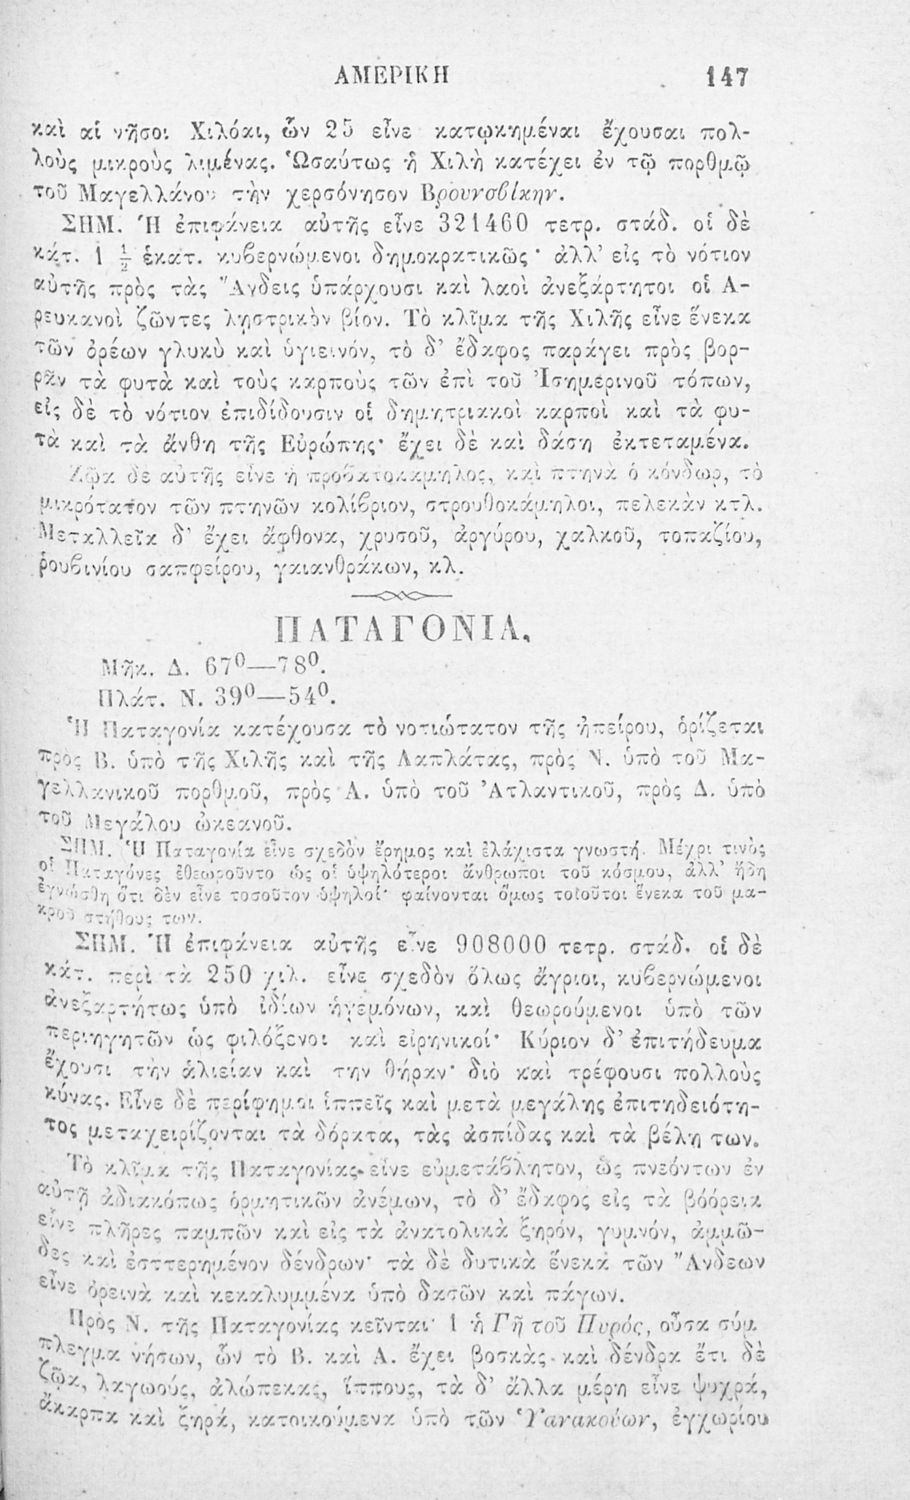 ΑΜΕΡΙΚΗ 147
καὶ αἱ νῆσοι Χιλόαι, ὧν 25 εἶνε κατῳκημέναι ἔχουσαι πολ-
λοὺς μικροὺς λιμένας. Ὡσαύτως ἡ Χιλὴ κατέχει ἐν τῷ πορθμῷ
τοῦ Μαγελλάνου τὴν χερσόνησον Βρουνσβίκην.
ΣΗΜ. Ἡ ἐπιφάνεια αὐτῆς εἶνε 321460 τετρ. στάδ. οἱ δὲ
κάτ. 1 ½ ἑκατ. κυβερνώμενοι δημοκρατικῶς· ἀλλ' εἰς τὸ νότιον
αὐτῆς πρὸς τὰς Ἄνδεις ὑπάρχουσι καὶ λαοὶ ἀνεξάρτητοι οἱ Α-
ρευκανοὶ ζῶντες λῃστρικὸν βίον. Τὸ κλῖμα τῆς Χιλῆς εἶνε ἕνεκα
τῶν ὀρέων γλυκὺ καὶ ὑγιεινόν, τὸ δ' ἔδαφος παράγει πρὸς βορ-
ρᾶν τὰ φυτὰ καὶ τοὺς καρποὺς τῶν ἐπὶ τοῦ Ἰσημερινοῦ τόπων,
εἰς δὲ τὸ νότιον ἐπιδίδουσιν οἱ δημητριακοὶ καρποὶ καὶ τὰ φυ-
τὰ καὶ τὰ ἄνθη τῆς Εὐρώπης· ἔχει δὲ καὶ δάση ἐκτεταμένα.
Ζῷα δὲ αὐτῆς εἶνε ἡ προβατοκάμηλος, καὶ πτηνὰ ὁ κόνδωρ, τὸ
μικρότατον τῶν πτηνῶν κολίβριον, στρουθοκάμηλοι, πελεκὰν κτλ.
Μεταλλεῖα δ' ἔχει ἄφθονα, χρυσοῦ, ἀργύρου, χαλκοῦ, τοπαζίου,
ῥουβινίου σαπφείρου, γαιανθράκων, κλ.
ΠΑΤΑΓΟΝΙΑ.
Μῆκ. Δ. 67⁰—78⁰.
Πλάτ. Ν. 39⁰—54⁰.
Ἡ Παταγονία κατέχουσα τὸ νοτιώτατον τῆς ἠπείρου, ὁρίζεται
πρὸς Β. ὑπὸ τῆς Χιλῆς καὶ τῆς Λαπλάτας, πρὸς Ν. ὑπὸ τοῦ Μα-
γελλανικοῦ πορθμοῦ, πρὸς Α. ὑπὸ τοῦ Ἀτλαντικοῦ, πρὸς Δ. ὑπὸ
τοῦ Μεγάλου ὠκεανοῦ.
ΣΗΜ. Ἡ Παταγονία εἶνε σχεδὸν ἔρημος καὶ ἐλάχιστα γνωστή. Μέχρι τινὸς
οἱ Παταγόνες ἐθεωροῦντο ὡς οἱ ὑψηλότεροι ἄνθρωποι τοῦ κόσμου, ἀλλ' ἤδη
ἐγνώσθη ὅτι δὲν εἶνε τοσοῦτον ὑψηλοί· φαίνονται ὅμως τοιοῦτοι ἕνεκα τοῦ μα-
κροῦ στήθους των.
ΣΗΜ. Ἡ ἐπιφάνεια αὐτῆς εἶνε 908000 τετρ. στάδ. οἱ δὲ
κάτ. περὶ τὰ 250 χιλ. εἶνε σχεδὸν ὅλως ἄγριοι, κυβερνώμενοι
ἀνεξαρτήτως ὑπὸ ἰδίων ἡγεμόνων, καὶ θεωρούμενοι ὑπὸ τῶν
περιηγητῶν ὡς φιλόξενοι καὶ εἰρηνικοί· Κύριον δ' ἐπιτήδευμα
ἔχουσι τὴν ἁλιείαν καὶ τὴν θήραν· διὸ καὶ τρέφουσι πολλοὺς
κύνας. Εἶνε δὲ περίφημοι ἱππεῖς καὶ μετὰ μεγάλης ἐπιτηδειότη-
τος μεταχειρίζονται τὰ δόρατα, τὰς ἀσπίδας καὶ τὰ βέλη των.
Τὸ κλῖμα τῆς Παταγονίας εἶνε εὐμετάβλητον, ὡς πνεόντων ἐν
αὐτῇ ἀδιακόπως ὁρμητικῶν ἀνέμων, τὸ δ' ἔδαφος εἰς τὰ βόρεια
εἶνε πλῆρες παμπῶν καὶ εἰς τὰ ἀνατολικὰ ξηρόν, γυμνόν, ἀμμῶ-
δες καὶ ἐστερημένον δένδρων· τὰ δὲ δυτικὰ ἕνεκα τῶν Ἄνδεων
εἶνε ὀρεινὰ καὶ κεκαλυμμένα ὑπὸ δασῶν καὶ πάγων.
Πρὸς Ν. τῆς Παταγονίας κεῖνται· 1 ἡ Γῆ τοῦ Πυρός, οὖσα σύμ
πλεγμα νήσων, ὧν τὸ Β. καὶ Α. ἔχει βοσκὰς καὶ δένδρα ἔτι δὲ
ζῷα, λαγωούς, ἀλώπεκας, ἵππους, τὰ δ' ἄλλα μέρη εἶνε ψυχρά,
ἄκαρπα καὶ ξηρά, κατοικούμενα ὑπὸ τῶν Ὑανακούων, ἐγχωρίου